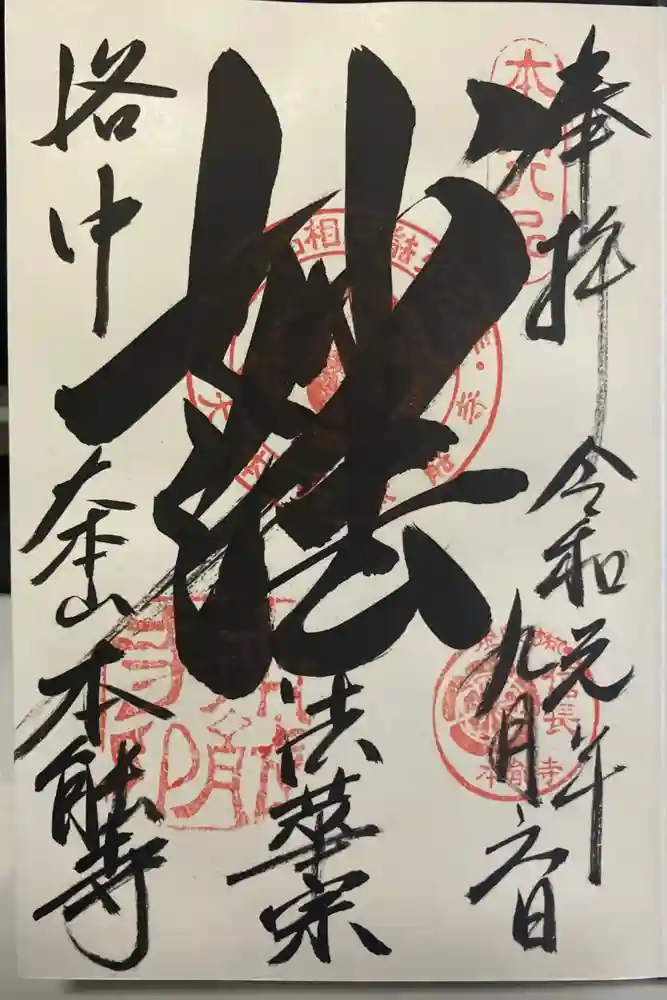 奉拝
令和元年
九月六日
妙法
法華宗
洛中
大本山
本能寺
信長
本能寺